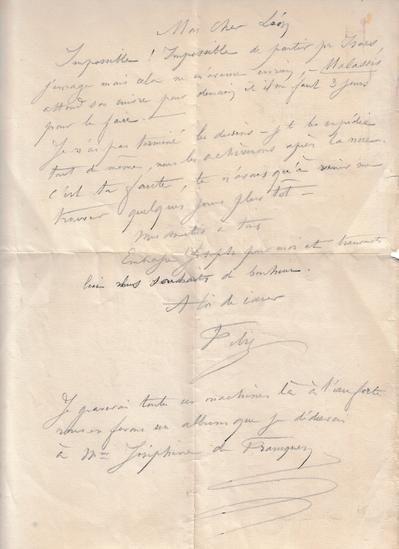 Mon cher Léon
Impossible ! Impossible de partir pr
j'enrage mais cela ne m'avance en rien, – Malassis
attend son cuivre pour demain et il m'en faut 3 jours
pour le faire –
Je n'ai pas terminé les dessins – je te les expédie
tout de même, nous les achèverons après la noce.
c'est ta faute, tu n'avais qu'à venir me
trouver quelques jours plus tôt –
Mes amitiés à tous
Embrasse Joseph pour moi et
bien des souhaits de bonheur.
A toi de cœur
Fély
Je graverai toutes ces machines là à l'eau forte
nous en ferons un album que je dédierai
à Mme Joséphine de